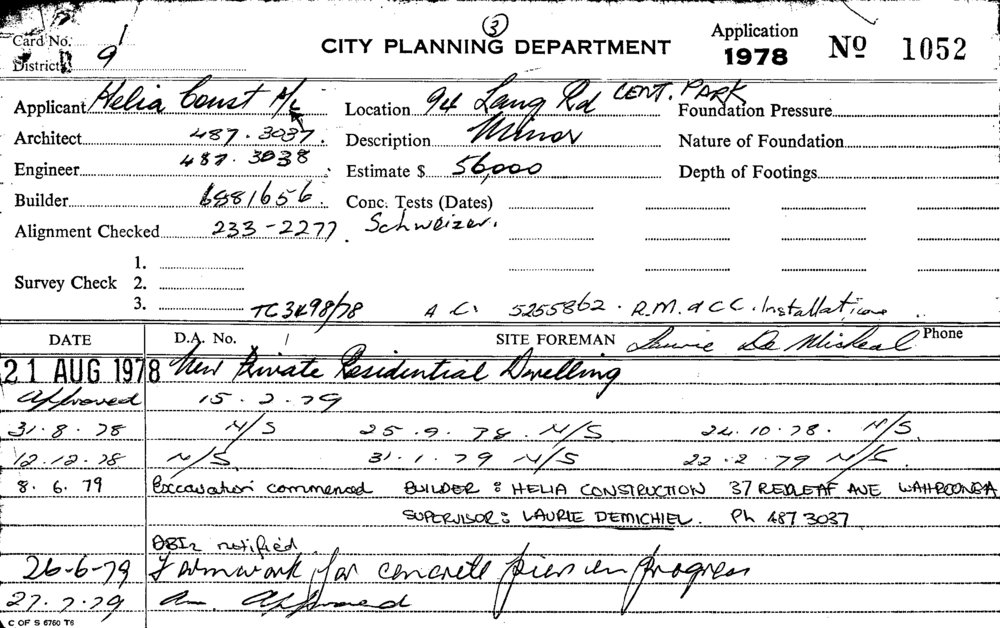 3
Card No. 1
District 9
CITY PLANNING DEPARTMENT
Application
1978 No 1052
Applicant Helia Const P/L Location 94 Lang Rd CENT. PARK Foundation Pressure
Architect 487.3037 Description Minor Nature of Foundation
Engineer 487.3038 Estimate $ 56,000 Depth of Footings
Builder 6881656 Conc. Tests (Dates)
Alignment Checked 233-2277 Schweizer.
Survey Check 1.
2.
3. TC3498/78 A C. 5255862. R.M. a C C. Installations
DATE D.A. No. / SITE FOREMAN Laurie De Micheal Phone
21 AUG 1978 New Private Residential Dwelling
Approved 15.2.79
31.8.78 N/S 25.9.78. N/S 24.10.78. N/S.
12.12.78 N/S. 31.1.79 N/S 22.2.79 N/S.
8.6.79 Excavation commenced BUILDER: HELIA CONSTRUCTION 37 REDLEAF AVE WAHROONGA
SUPERVISOR: LAURIE DEMICHIEL. Ph 487 3037
notified.
26-6-79 Formwork for concrete piers in progress
27.7.79 Am. Approved
C OF S 6760 T6